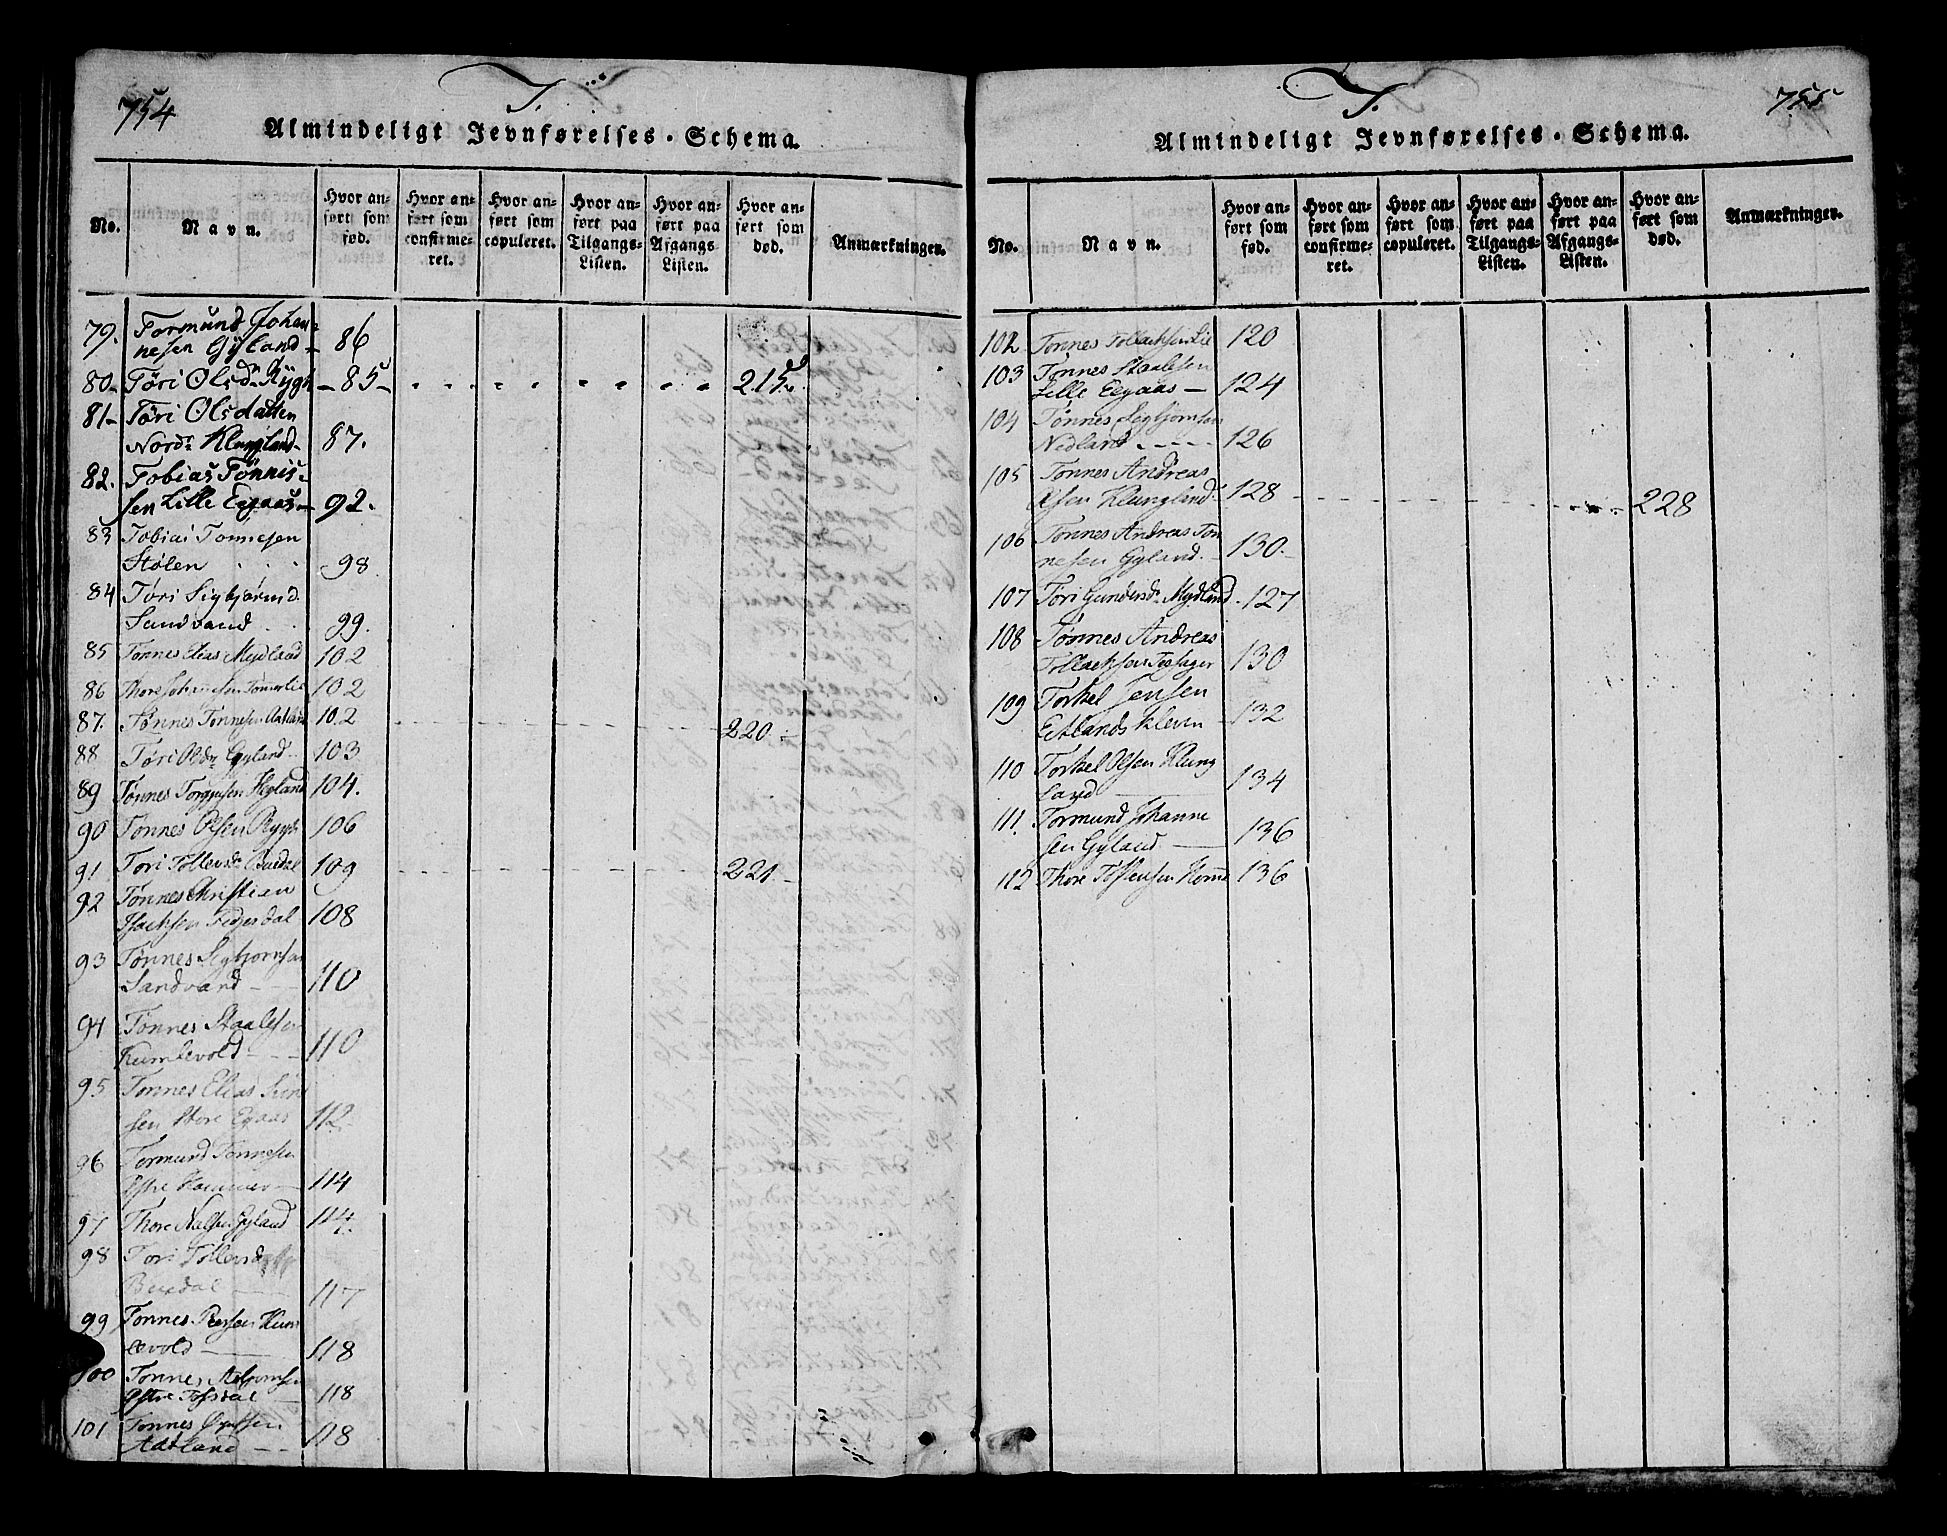 754
T.
Almindeligt Jevnførelses-Schema.
No. Navn. Hvor anført som fød. Hvor anført som confirmeret. Hvor anført som copuleret. Hvor anført paa Tilgangs-Listen. Hvor anført paa Afgangs Listen. Hvor anført som død. Anmærkninger.
79. Tormund Johan-
nesen Gyland 86
80 Töri Olsdr Rygh 85 215.
81 Töri Olsdatter
Nordr Klungland 87.
82. Tobias Tönnis-
sen Lille Eegaas 92.
83 Tobias Tonnesen
Stølen 98
84 Töri Sigbjørnsd.
Sandvand 99.
85 Tonnes Elias Mydland 102
86 Thore Johannesen Tomerlie 102
87. Tønnes Tonnesen 102 220
88 Tøri Olsdr Gyland 103
89 Tønnes 104.
90 Tønnes Olsen Rygh 106
91 Tori Tollevsdr 109 221
92 Tønnes Christien
Isachsen 108
93 Tønnes Sigbjørnsen
Sandvand 110
94 Tønnes Staalesen
Kumlevold 110
95 Tønnes Elias
sen Store Egaas 112
96 Tormund Tonnesen
114
97 Thore Gyland 114.
98 Tori Tollevsd
117
99 Tonnes Kum
levold 118
100 Tonnes
118
101 Tonnes
Aatland 118
755
T.
Almindeligt Jevnførelses-Schema.
No. Navn. Hvor anført som fød. Hvor anført som confirmeret. Hvor anført som copuleret. Hvor anført paa Tilgangs-Listen. Hvor anført paa Afgangs-Listen. Hvor anført som død. Anmærkninger.
102 Tønnes Tollachsen Lie 120
103 Tønnes Staalesen
Lille Eegaas 124
104 Tønnes Sigbjørnsen
Nedland 126
105 Tønnes Andreas
Olsen Klungland 128 228
106 Tønnes Andreas Ton
nesen Gyland. 130.
107 Töri Gundersdr Mydland 127
108 Tønnes Andreas
Tollachsen 130
109 Torkel Jensen
Eitlands Kleven 132
110 Torkel Olsen Klung
land 134
111. Tormund Johanne
sen Gyland 136
112 Thore 136